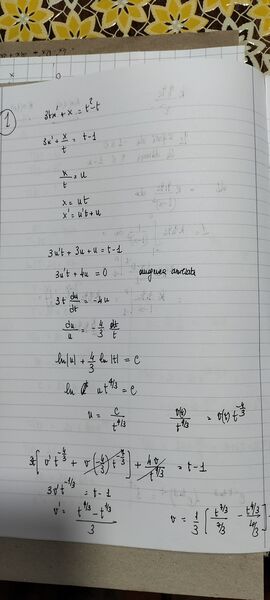 1
3tx' + x = t² - t
3x' + x/t = t - 1
x/t = u
x = ut
x' = u't + u
3u't + 3u + u = t - 1
3u't + 4u = 0
3t du/dt = -4u
du/u = -4/3 dt/t
ln|u| + 4/3 ln|t| = c
ln u t^(4/3) = c
u = c/t^(4/3) v(t)/t^(4/3) = v(t) t^(-4/3)
3t[v' t^(-4/3) + v(-4/3) t^(-7/3)] + 4v/t^(4/3) = t - 1
3v' t^(-1/3) = t - 1
v' = (t^(4/3) - t^(1/3))/3 v = 1/3 [t^(7/3)/(7/3) - t^(4/3)/(4/3)]